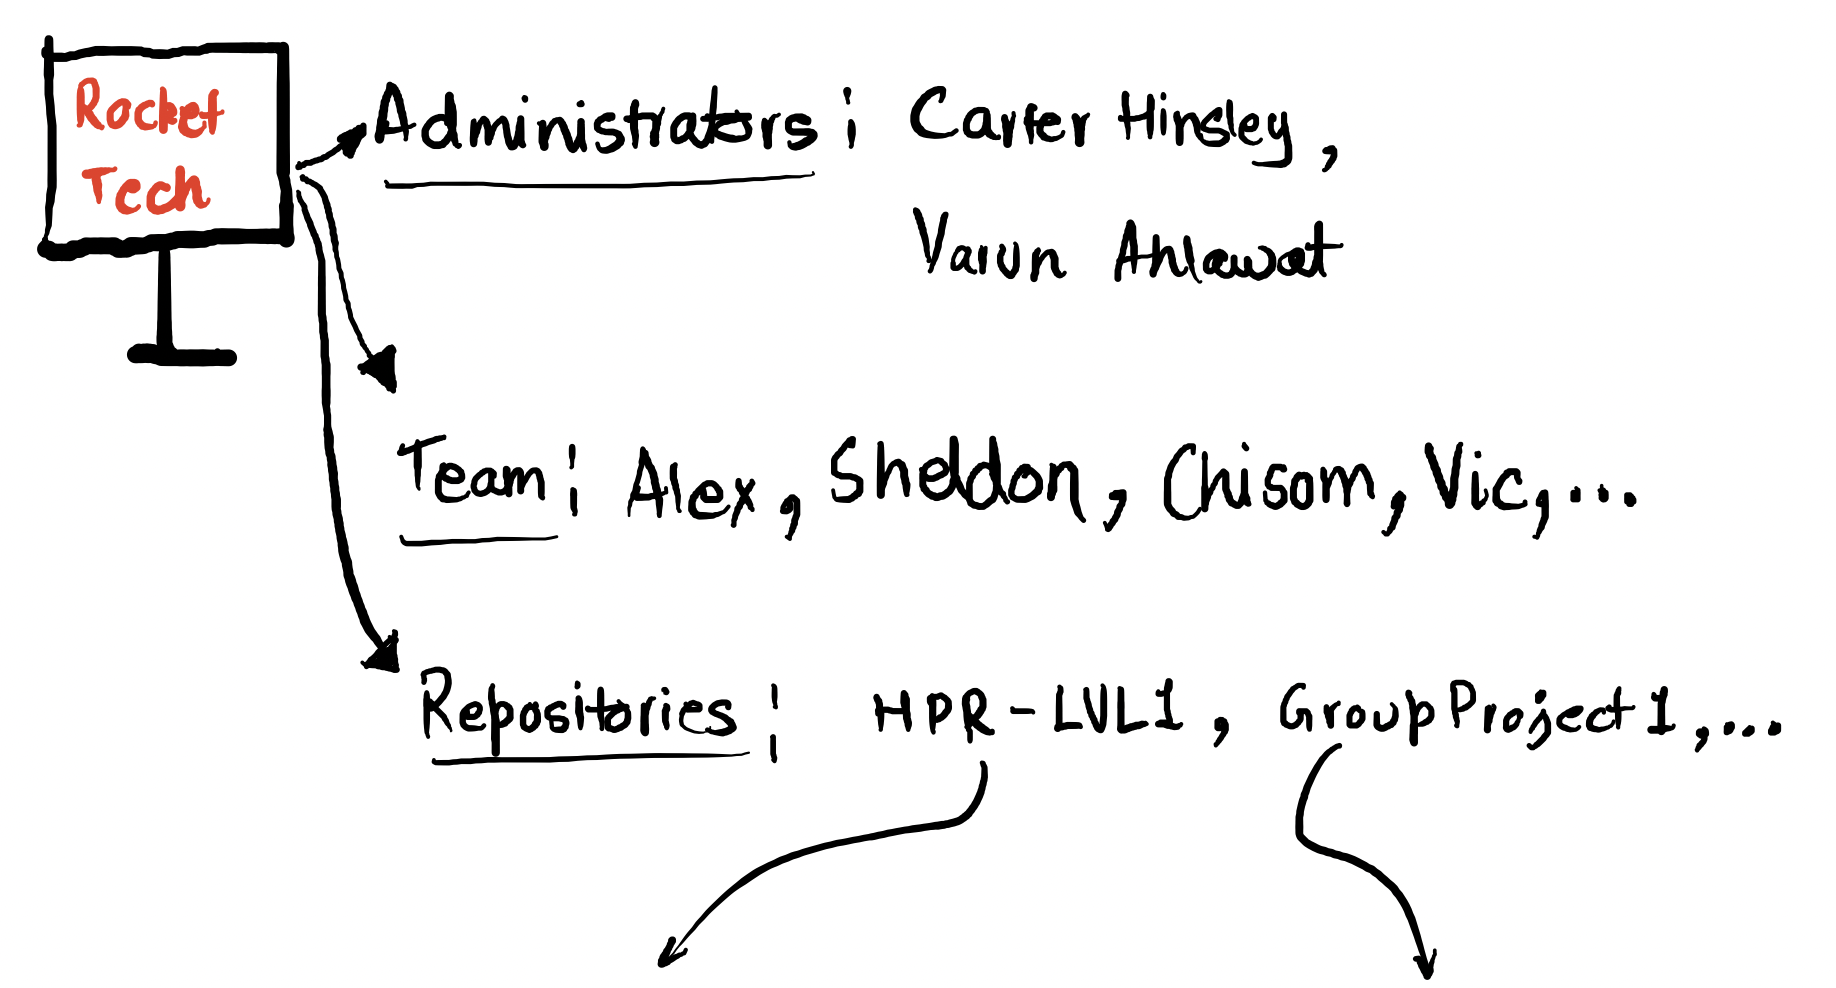 Rocket
Tech
Administrators: Carter Hinsley,
Varun Ahlawat
Team: Alex, Sheldon, Chisom, Vic,...
Repositories: HPR-LVL1, GroupProject1,...